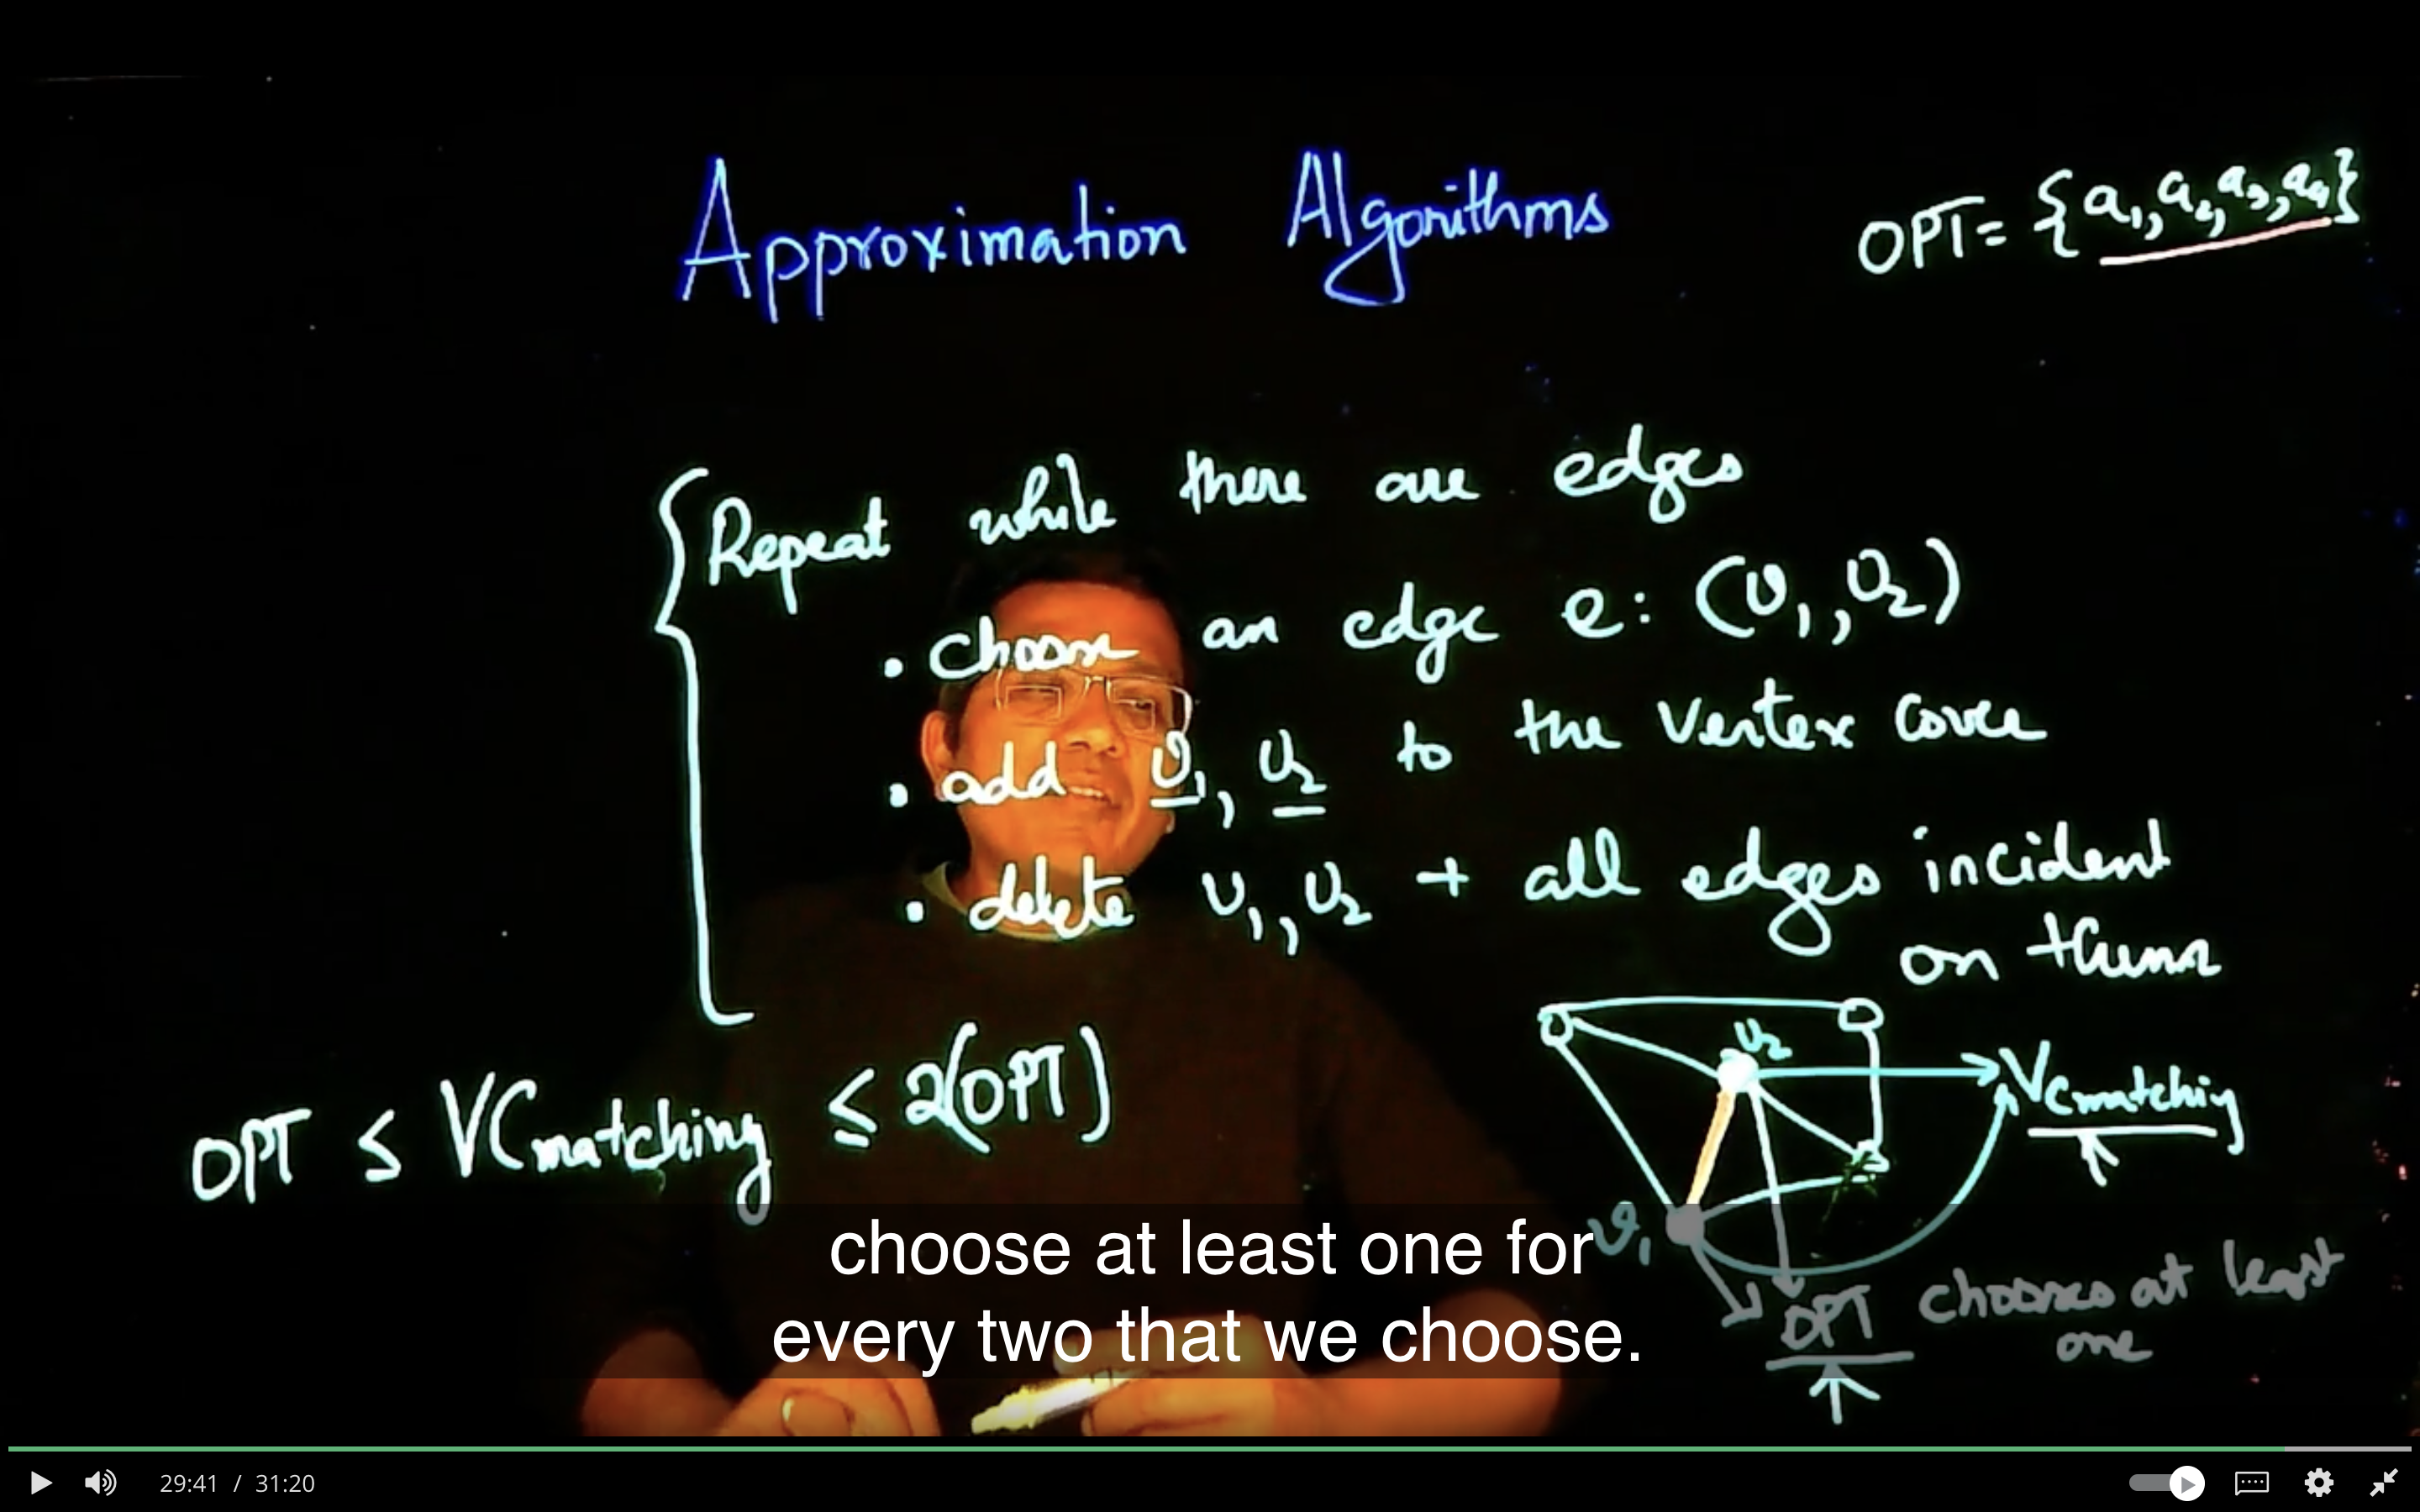 Approximation Algorithms
OPT= {a1, a2, a3, a4}
Repeat while there are edges
• choose an edge e: (v1, v2)
• add v1, v2 to the Vertex cover
• delete v1, v2 + all edges incident
on them
OPT ≤ VCmatching ≤ 2(OPT)
v2
VCmatching
v1
OPT chooses at least
one
choose at least one for
every two that we choose.
29:41 / 31:20